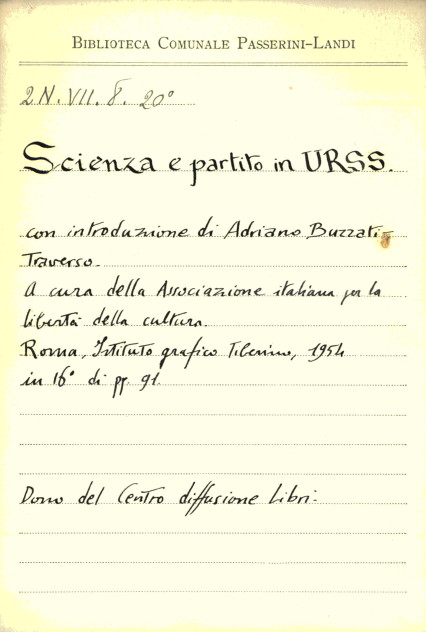 BIBLIOTECA COMUNALE PASSERINI-LANDI
2N.VII.8. 20°
Scienza e partito in URSS.
con introduzione di Adriano Buzzati-
Traverso.
A cura della Associazione italiana per la
libertà della cultura.
Roma, Istituto grafico Tiberino, 1954
in 16° di pp. 91.
Dono del Centro diffusione Libri.